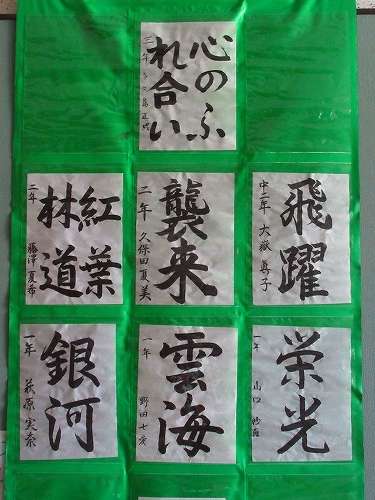 心のふ
れ合い
三年
飛躍
中二年 大嶽 真子
襲来
二年 久保田夏美
紅葉
林道
二年 藤澤 夏希
栄光
一年 山口
雲海
一年 野田七愛
銀河
一年 萩原実奈